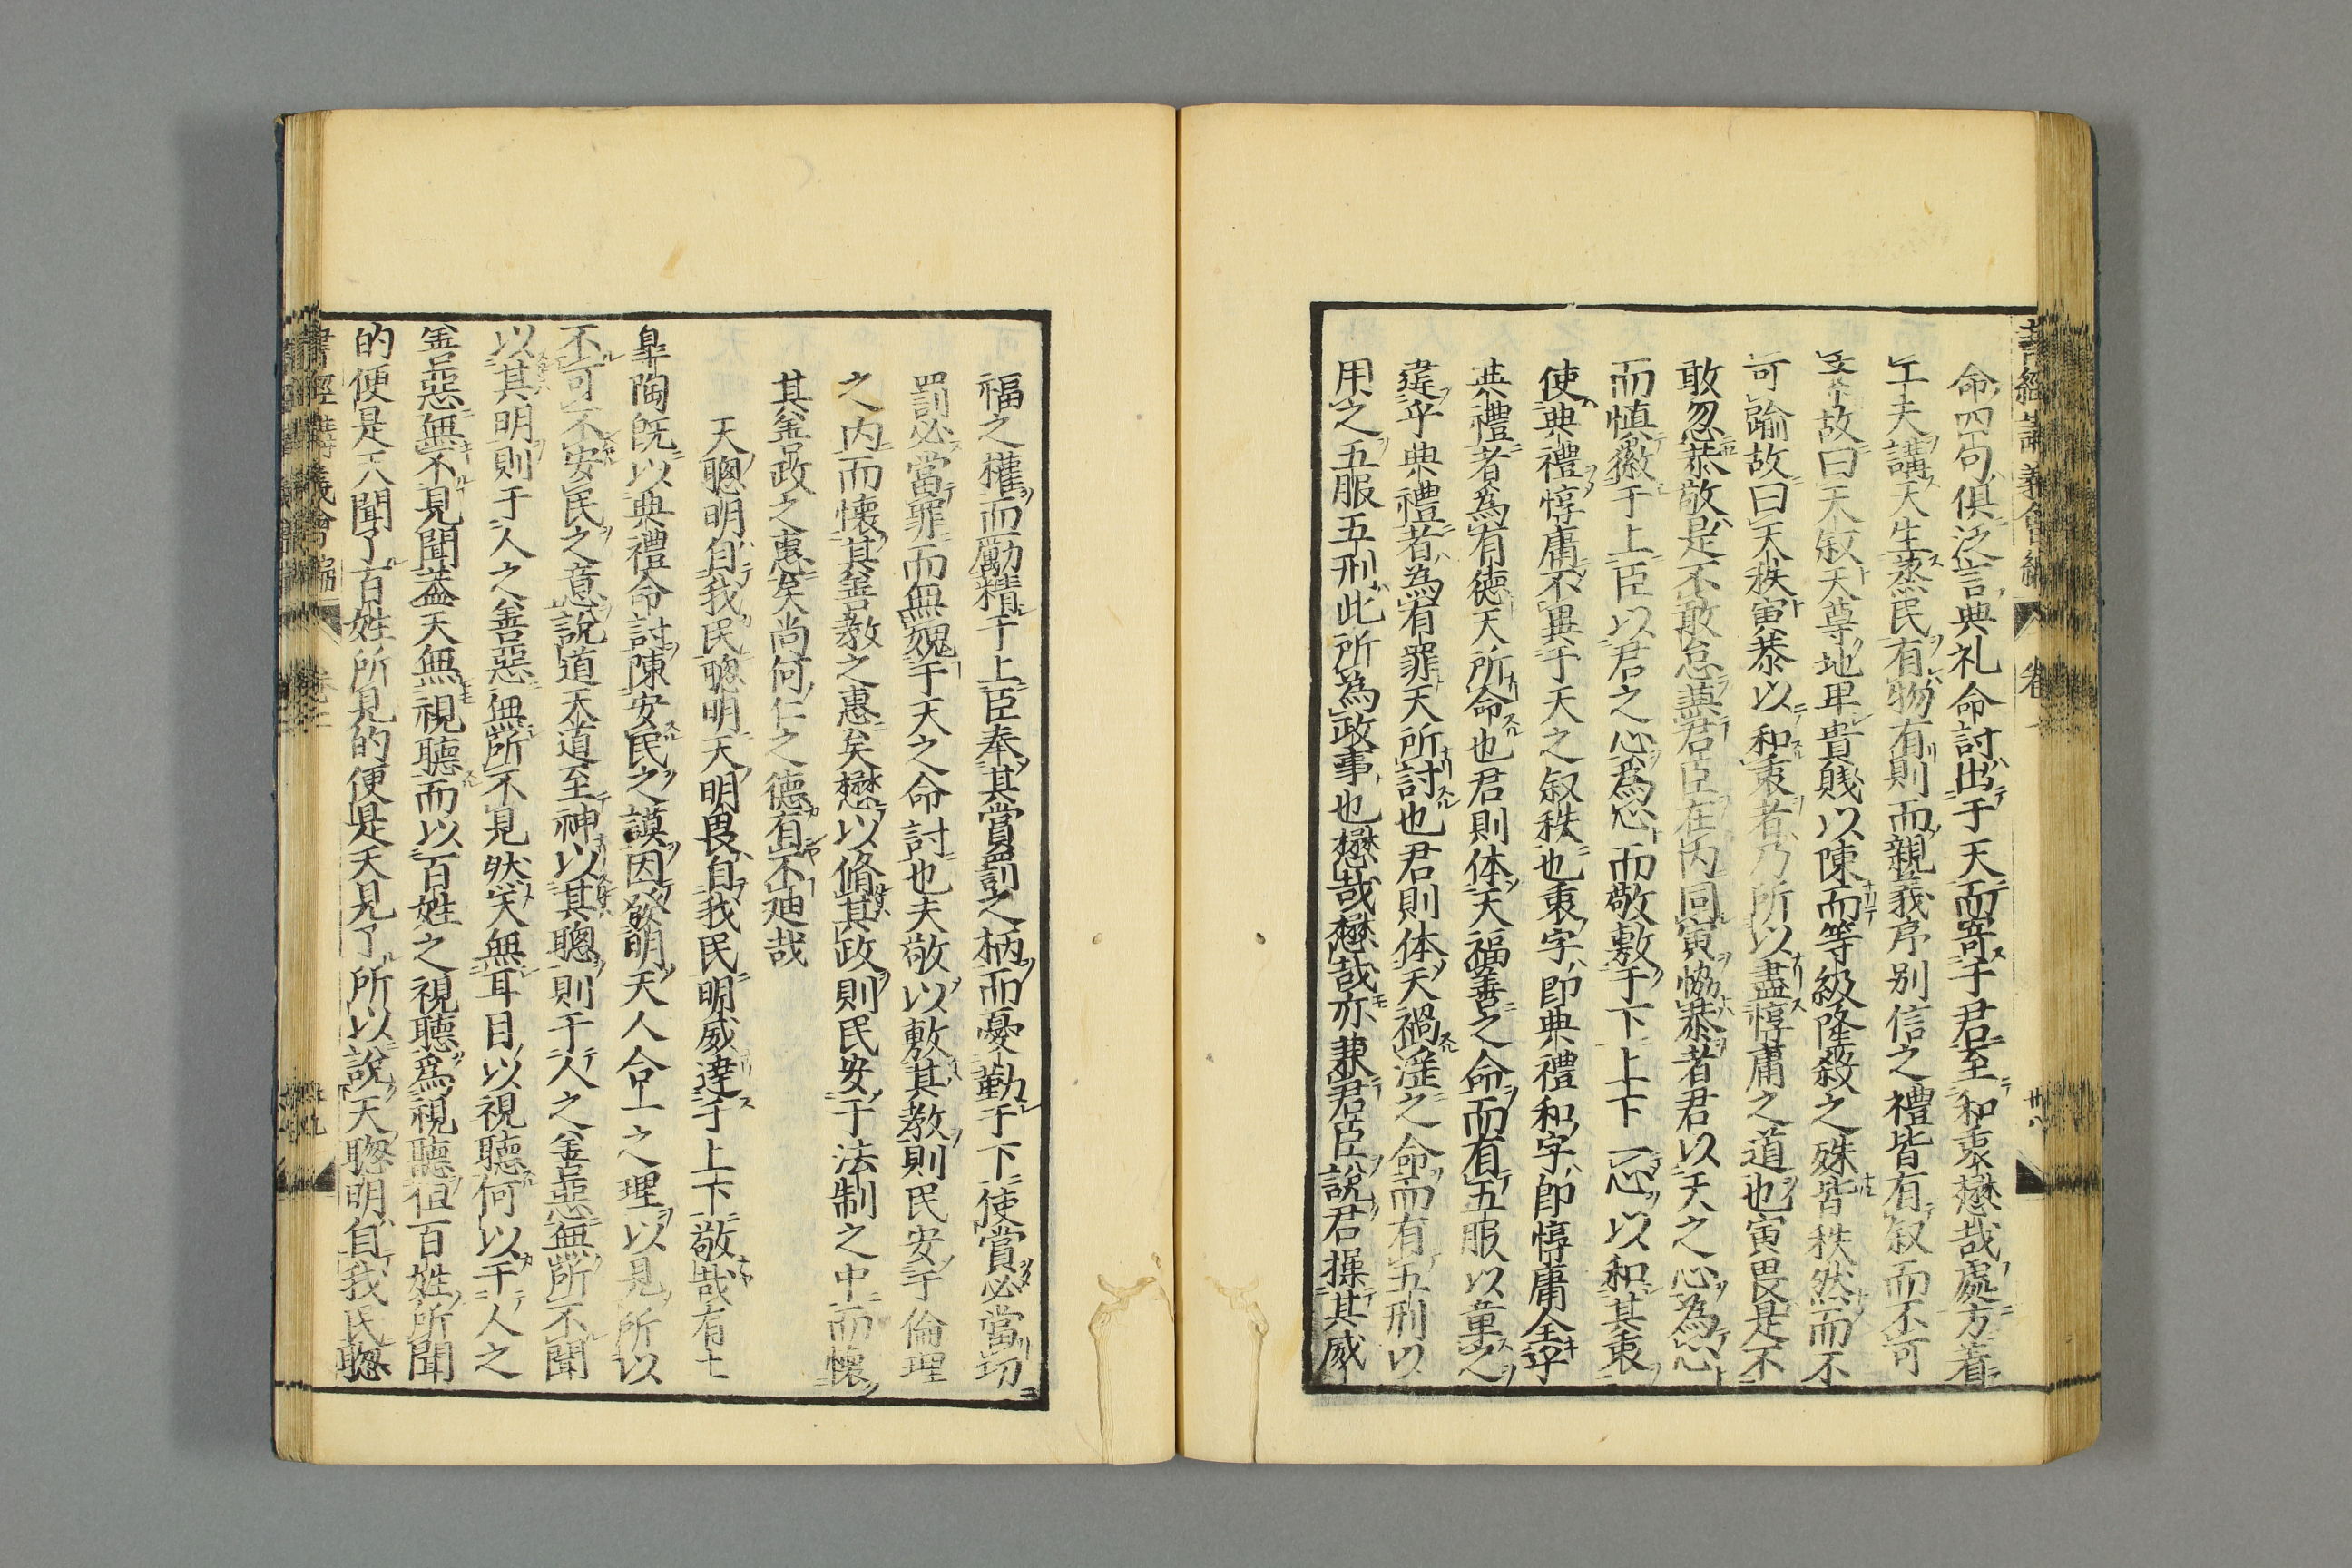 命四句俱泛言典礼命討出于天而寄于君至和衷懋哉處方着
工夫講天生蒸民有物有則而親義序别信之禮皆有叙而不可
紊故曰天叙天尊地卑貴賤以陳而等級隆殺之殊皆秩然而不
可踰故曰天秩寅恭以和衷者乃所以盡惇庸之道也寅畏是不
敢忽恭敬是不敢怠蓋君臣在内同寅協恭者君以天之心為心
而慎徽于上臣以君之心為心而敬敷于下上下一心以和其衷
使典禮惇庸不異于天之叙秩也衷字即典禮和字即惇庸全乎
典禮者為有德天所命也君則体天福善之命而有五服以章之
違乎典禮者為有罪天所討也君則体天禍淫之命而有五刑以
用之五服五刑此所為政事也懋哉懋哉亦兼君臣說君操其威
福之權而勵精于上臣奉其賞罰之柄而憂勤于下使賞必當功
罰必當罪而無愧于天之命討也夫敬以敷其教則民安于倫理
之内而懷其善教之惠矣懋以脩其政則民安于法制之中而懷
其善政之惠矣尚何仁之德有不廸哉
天聰明自我民聰明天明畏自我民明威達于上下敬哉有土
皐陶既以典禮命討陳安民之謨因發明天人合一之理以見所以
不可不安民之意說道天道至神以其聰則于人之善惡無所不聞
以其明則于人之善惡無所不見然天無耳目以視聽何以于人之
善惡無不見聞蓋天無視聽而以百姓之視聽為視聽但百姓所聞
的便是天聞了百姓所見的便是天見了所以說天聰明自我民聰
書經講義會編
卷二